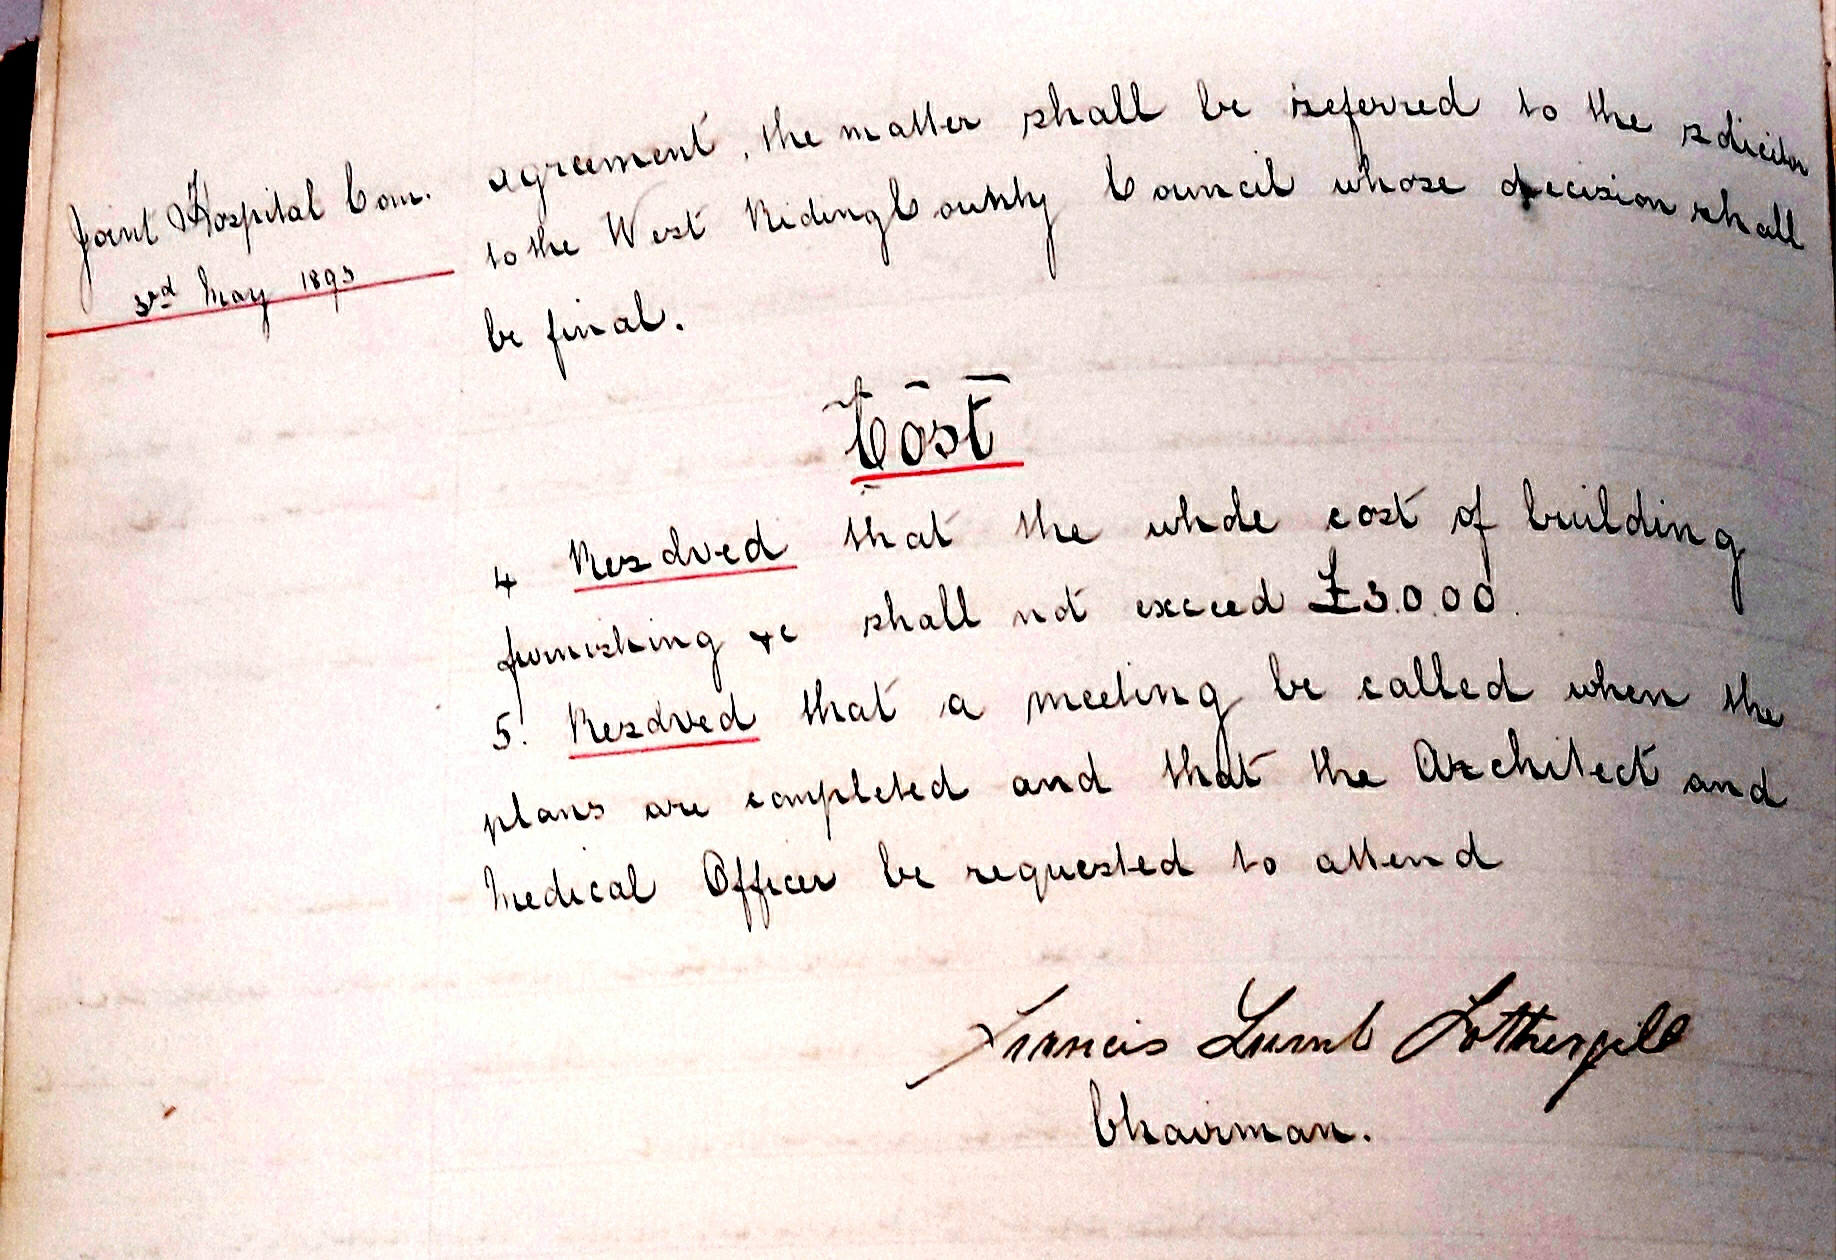 Joint Hospital Com.
3rd May 1893
agreement, the matter shall be referred to the solicitor
to the West Riding County Council whose decision shall
be final.
Cost
4 Resolved that the whole cost of building
furnishing &c shall not exceed £3.0.00.
5. Resolved that a meeting be called when the
plans are completed and that the Architect and
Medical Officer be requested to attend
Francis Lumb Fothergill
Chairman.